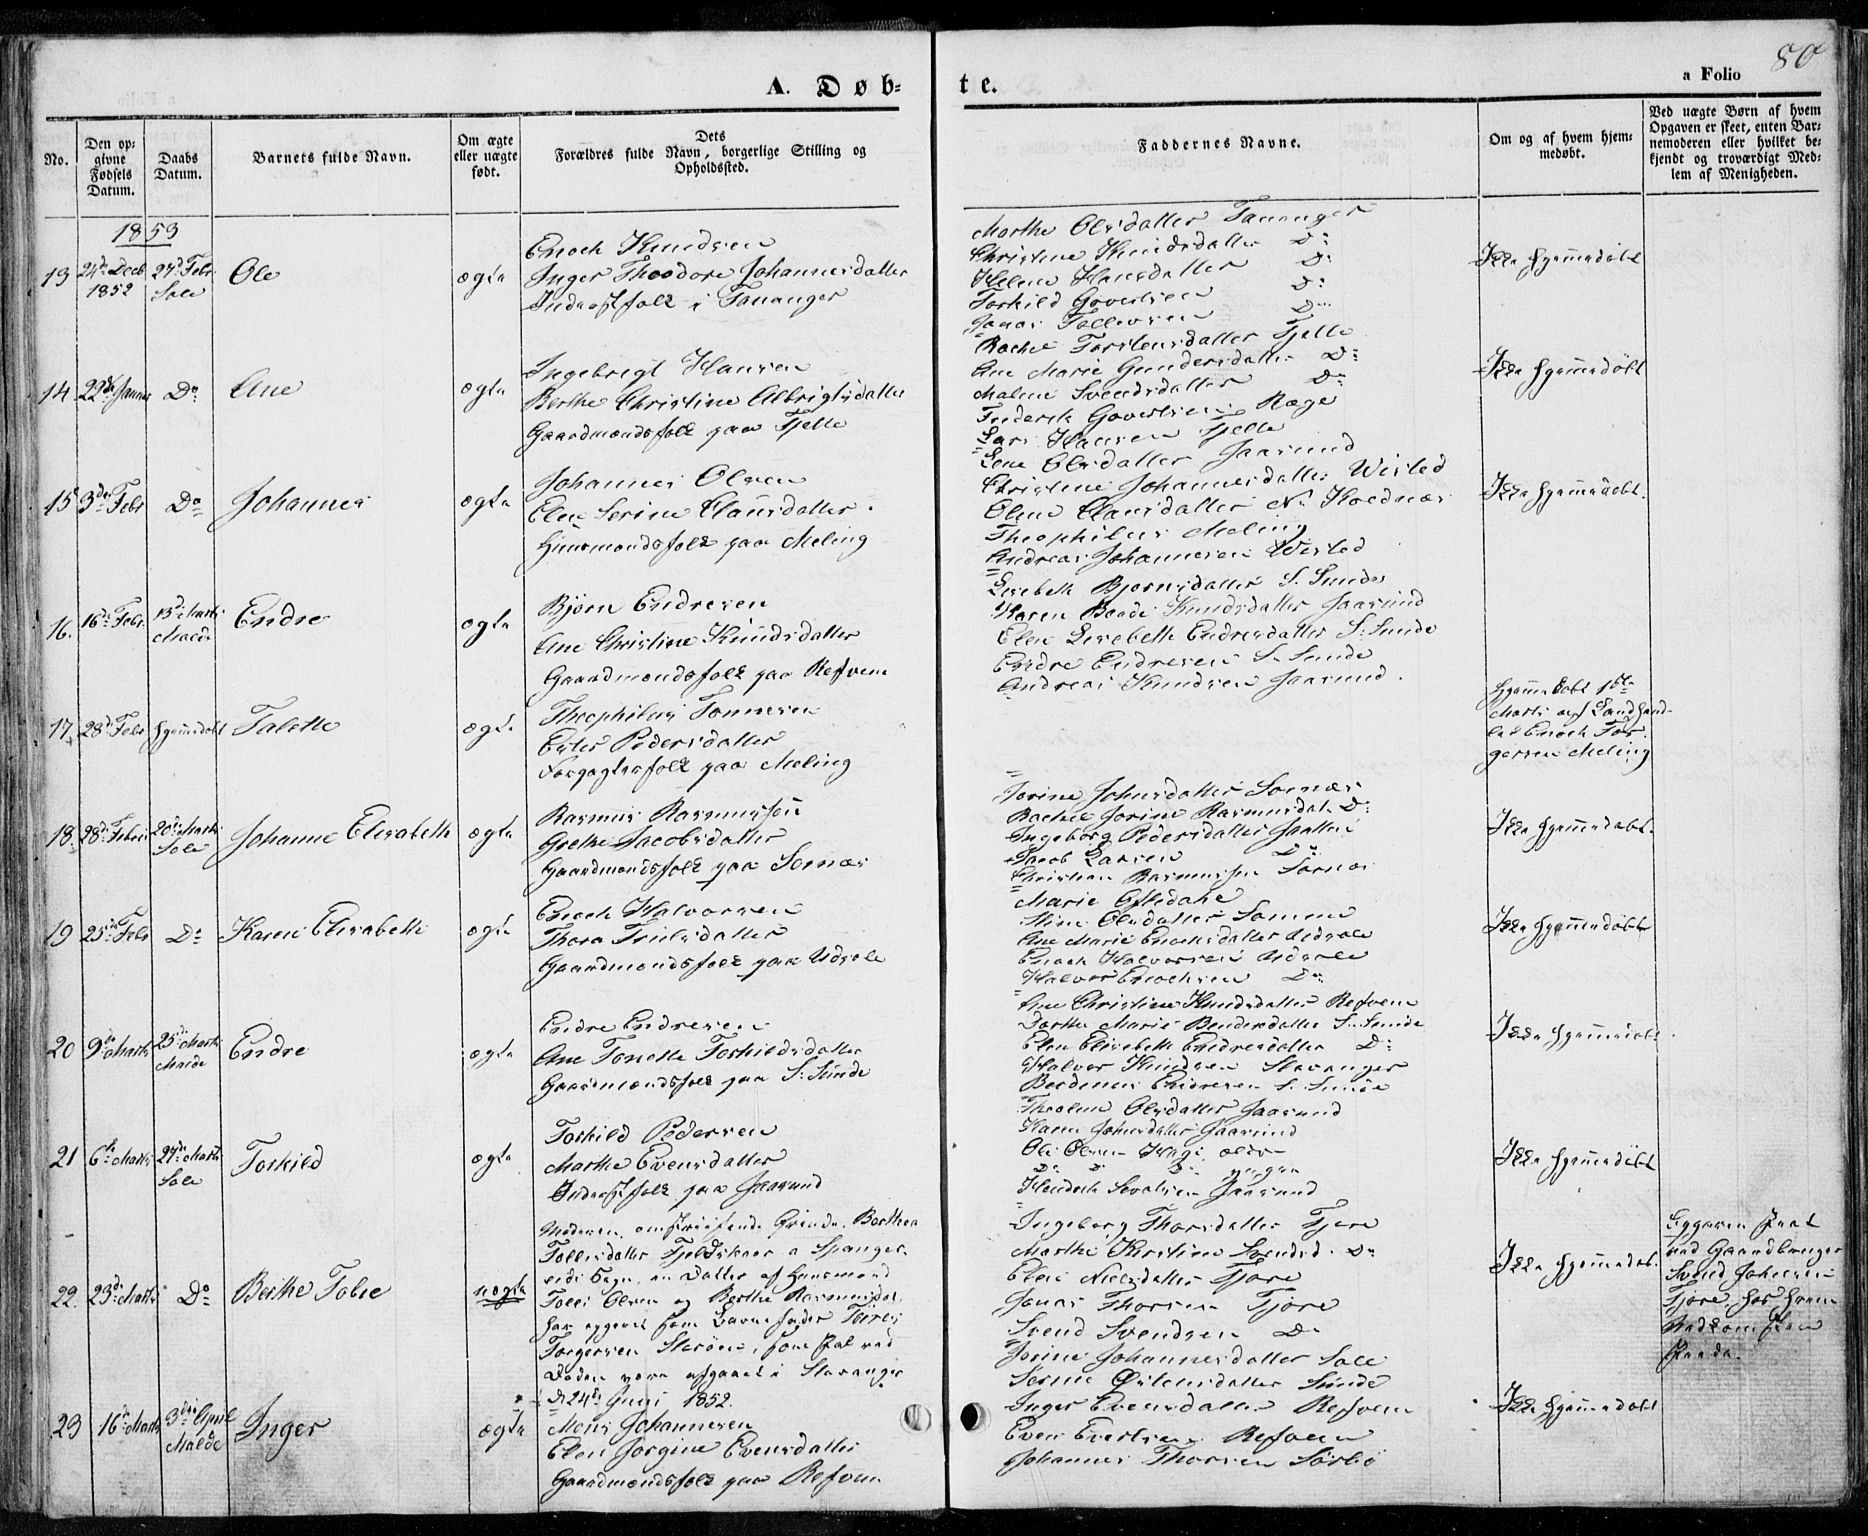 A. Døb=
te.
a Folio
80
No.
Den op=
givne
Fødsels
Datum.
Daabs
Datum.
Barnets fulde Navn.
Om ægte
eller uægte
født.
Dets
Forældres fulde Navn, borgerlige Stilling og
Opholdssted.
Faddernes Navne.
Om og af hvem hjem=
medøbt.
Ved uægte Børn af hvem
Opgaven er skeet, enten Bar=
nemoderen eller hvilket be=
kjendt og troværdigt Med=
lem af Menigheden.
1853
13
24de Decb
1852
27de Febr
Sole
Ole
ægte
Enoch Knudsen
Inger Theodore Johannesdatter
Inderstfolk i Tananger
Marthe Olsdatter Tananger
Christine Knudsdatter Do
Helene Hansdatter Do
Torkild Govertsen Do
Jonas Tollevsen Do
Ikke hjemmedøbt
14
22de Januar
Do
Ane
ægte
Ingebrigt Hansen
Berthe Christine Albrigtsdatter
Gaardmandsfolk paa Tjelle
Rachel Torstensdatter Tjelle
Ane Marie Gundersdatter Do
Malene Svendsdatter Do
Frederik Govertsen Ræge
Lars Hansen Tjelle
Ikke hjemmedøbt
15
3die Febr
Do
Johannes
ægte
Johannes Olsen
Elen Serine Clausdatter
Huusmandsfolk paa Meling
Lene Olsdatter Jaasund
Christine Johannesdatter Wisted
Olene Clausdatter N. Haednæs
Theophilus Meling
Andreas Johannesen Wisted
Ikke hjemmedøbt.
16.
16de Febr
13de Marts
Malde
Endre
ægte
Bjørn Endresen
Ane Christine Knudsdatter
Gaardmandsfolk paa Refvem
Lisebeth Bjørnsdatter S. Sunde
Karen Knudsdatter Jaasund
Elen Lisebeth Endresdatter S. Sunde
Endre Endresen S. Sunde
Andreas Knudsen Jaasund.
17
28de Febr
hjemmedøbt
Talette
ægte
Theophilus Tonnesen
Ester Pedersdatter
Forpagterfolk paa Meling
Hjemmedøbt 1ste
Marts af Landhand-
ler Enoch Tor-
gersen Meling
18.
28de Febr
20de Marts
Sole
Johanne Elisabeth
ægte
Rasmus Rasmussen
Grethe Jacobsdatter
Gaardmandsfolk paa Sømnæs
Jorine Johnsdatter Sømnæs
Rachel Jorine Rasmusdat. Do
Ingeborg Pedersdatter Jaatten
Jacob Larsen Do
Christian Rasmussen Sømnæs
Ikke hjemmedøbt.
19
25de Febr
Do
Karen Elisabeth
ægte
Enoch Halvorsen
Thora Trulsdatter
Gaardmandsfolk paa Udsole
Marie Eftedahl
Stine Olsdatter Sømme
Ane Marie Enochsdatter Udsole
Enoch Halvorsen Udsole
Halvor Enochsen Do
Ikke hjemmedøbt
20
9de Marts
25de Marts
Malde
Endre
ægte
Endre Endresen
Ane Tonette Torkildsdatter
Gaardmandsfolk paa S. Sunde
Ane Christine Knudsdatter Refvem
Dorthe Marie Bendixdatter S. Sunde
Elen Elisabeth Endresdatter Do
Halvor Knudsen Stavanger
Berdines Endresen S. Sunde
Ikke hjemmedøbt.
21
6te Marts
27de Marts
Sole
Torkild
ægte
Torkild Pedersen
Marthe Evensdatter
Inderstfolk paa Jaasund
Theoline Olsdatter Jaasund
Karen Johnsdatter Jaasund
Ole Olsen Hagi ældre
Do Do Do yngre
Hendrik Sivertsen Jaasund
Ikke hjemmedøbt
22.
23de Marts
Do
Berthe Tobie
uægte
Moderen omstreifende Qvinde Berthea
Tollisdatter Fjeldskaar
vids Sogn, en Datter af Huusmand
Tolli Olsen og Berthe Rasmusdat.
har opgivet som Barnefader
Torgersen, som skal ved
Døden være afgaaet i Stavanger
d. 24de Juni 1852.
Ingeborg Thorsdatter Tjøre
Marthe Kirstine Svendsd. Do
Elen Nielsdatter Tjøre
Jonas Thorsen Tjøre
Svend Svendsen Do
Ikke hjemmedøbt.
Opgaven skeet
ved Gaardbruger
Svend Johnsen
Tjøre, hos hvem
Vedkommende
23
16de Marts
3die April
Malde
Inger
ægte
Mons Johannesen
Elen Jorgine Evensdatter
Gaardmandsfolk paa Refvem
Jorine Johannesdatter Sole
Serine Sunde
Inger Evensdatter Refvem
Even Evertsen Refvem
Johannes Thorsen Sørbø
Ikke hjemmedøbt